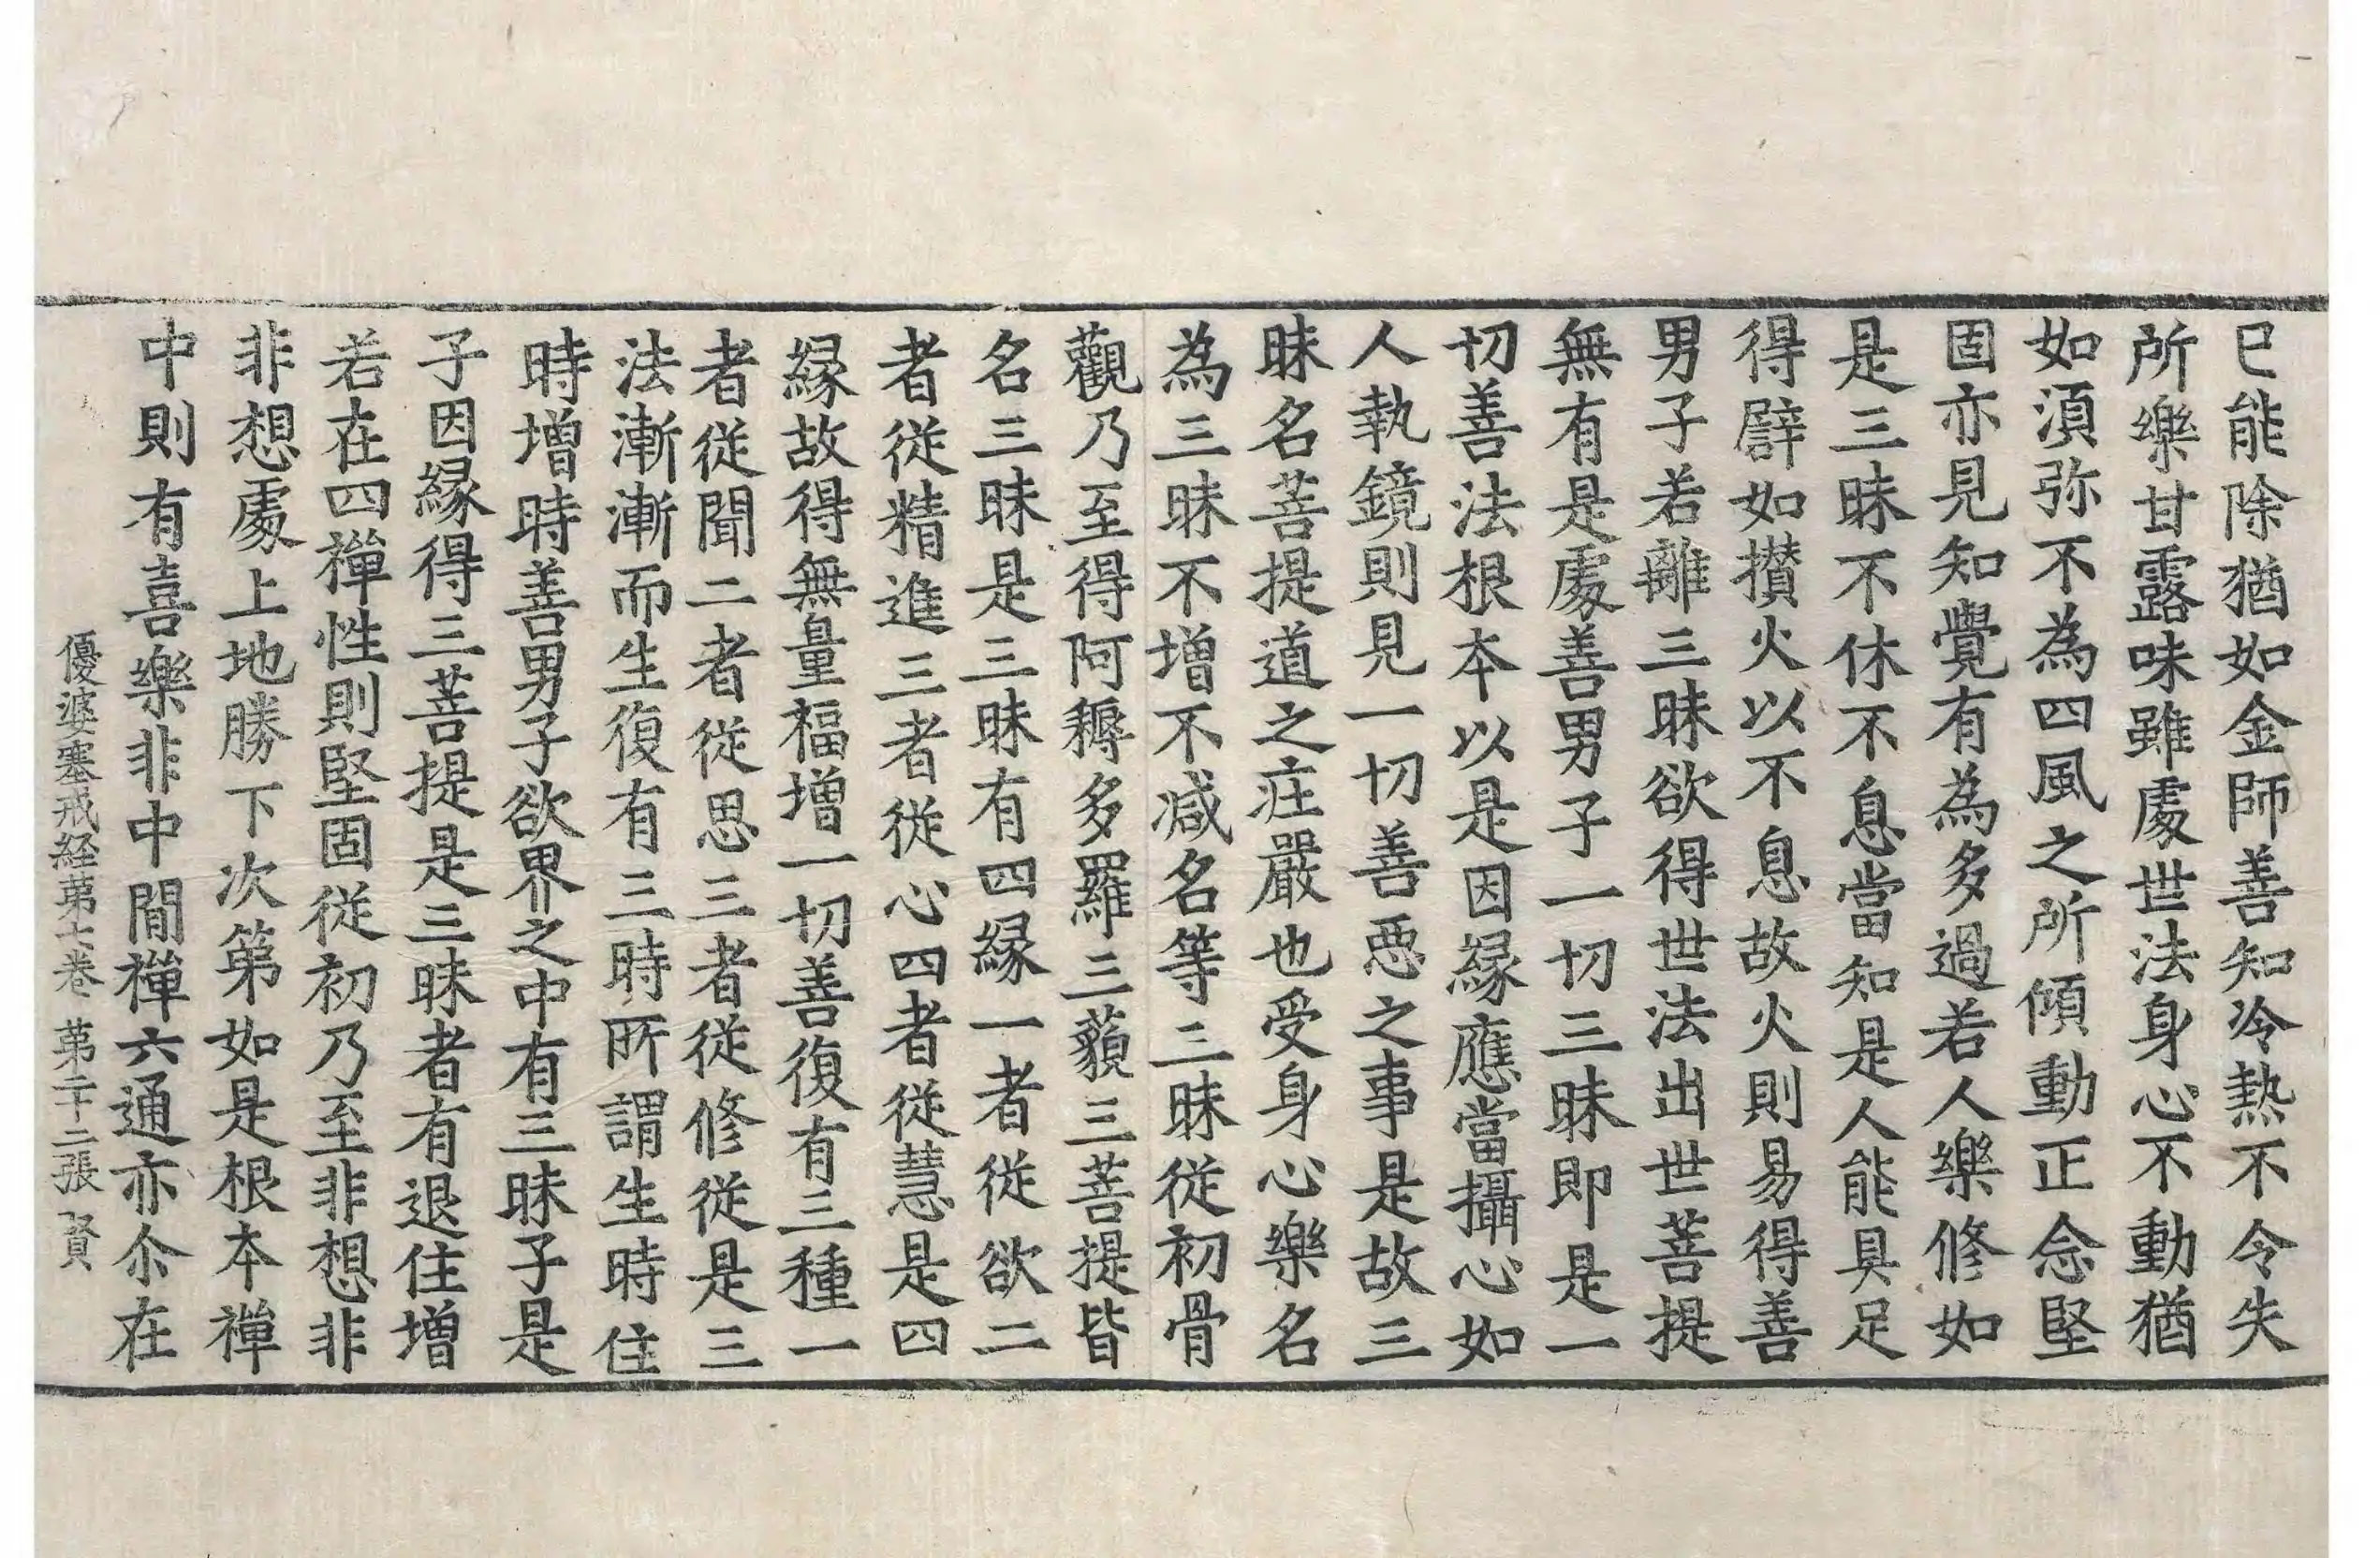 已能除猶如金師善知冷熱不令失
所樂甘露味雖處世法身心不動猶
如湏弥不為四風之所傾動正念堅
固亦見知覺有為多過若人樂修如
是三昧不休不息當知是人能具足
得譬如攅火以不息故火則易得善
男子若離三昧欲得世法出世菩提
無有是處善男子一切三昧即是一
切善法根本以是因縁應當攝心如
人執鏡則見一切善惡之事是故三
昧名菩提道之疘嚴也受身心樂名
為三昧不增不减名等三昧從初骨
觀乃至得阿耨多羅三藐三菩提皆
名三昧是三昧有四縁一者從欲二
者從精進三者從心四者從慧是四
縁故得無量福增一切善復有三種一
者從聞二者從思三者從修從是三
法漸漸而生復有三時所謂生時住
時增時善男子欲界之中有三昧子是
子因縁得三菩提是三昧者有退住增
若在四禪性則堅固從初乃至非想非
非想處上地勝下次第如是根本禪
中則有喜樂非中間禪六通亦尒在
優婆塞戒経苐七卷 苐二十二張 賢